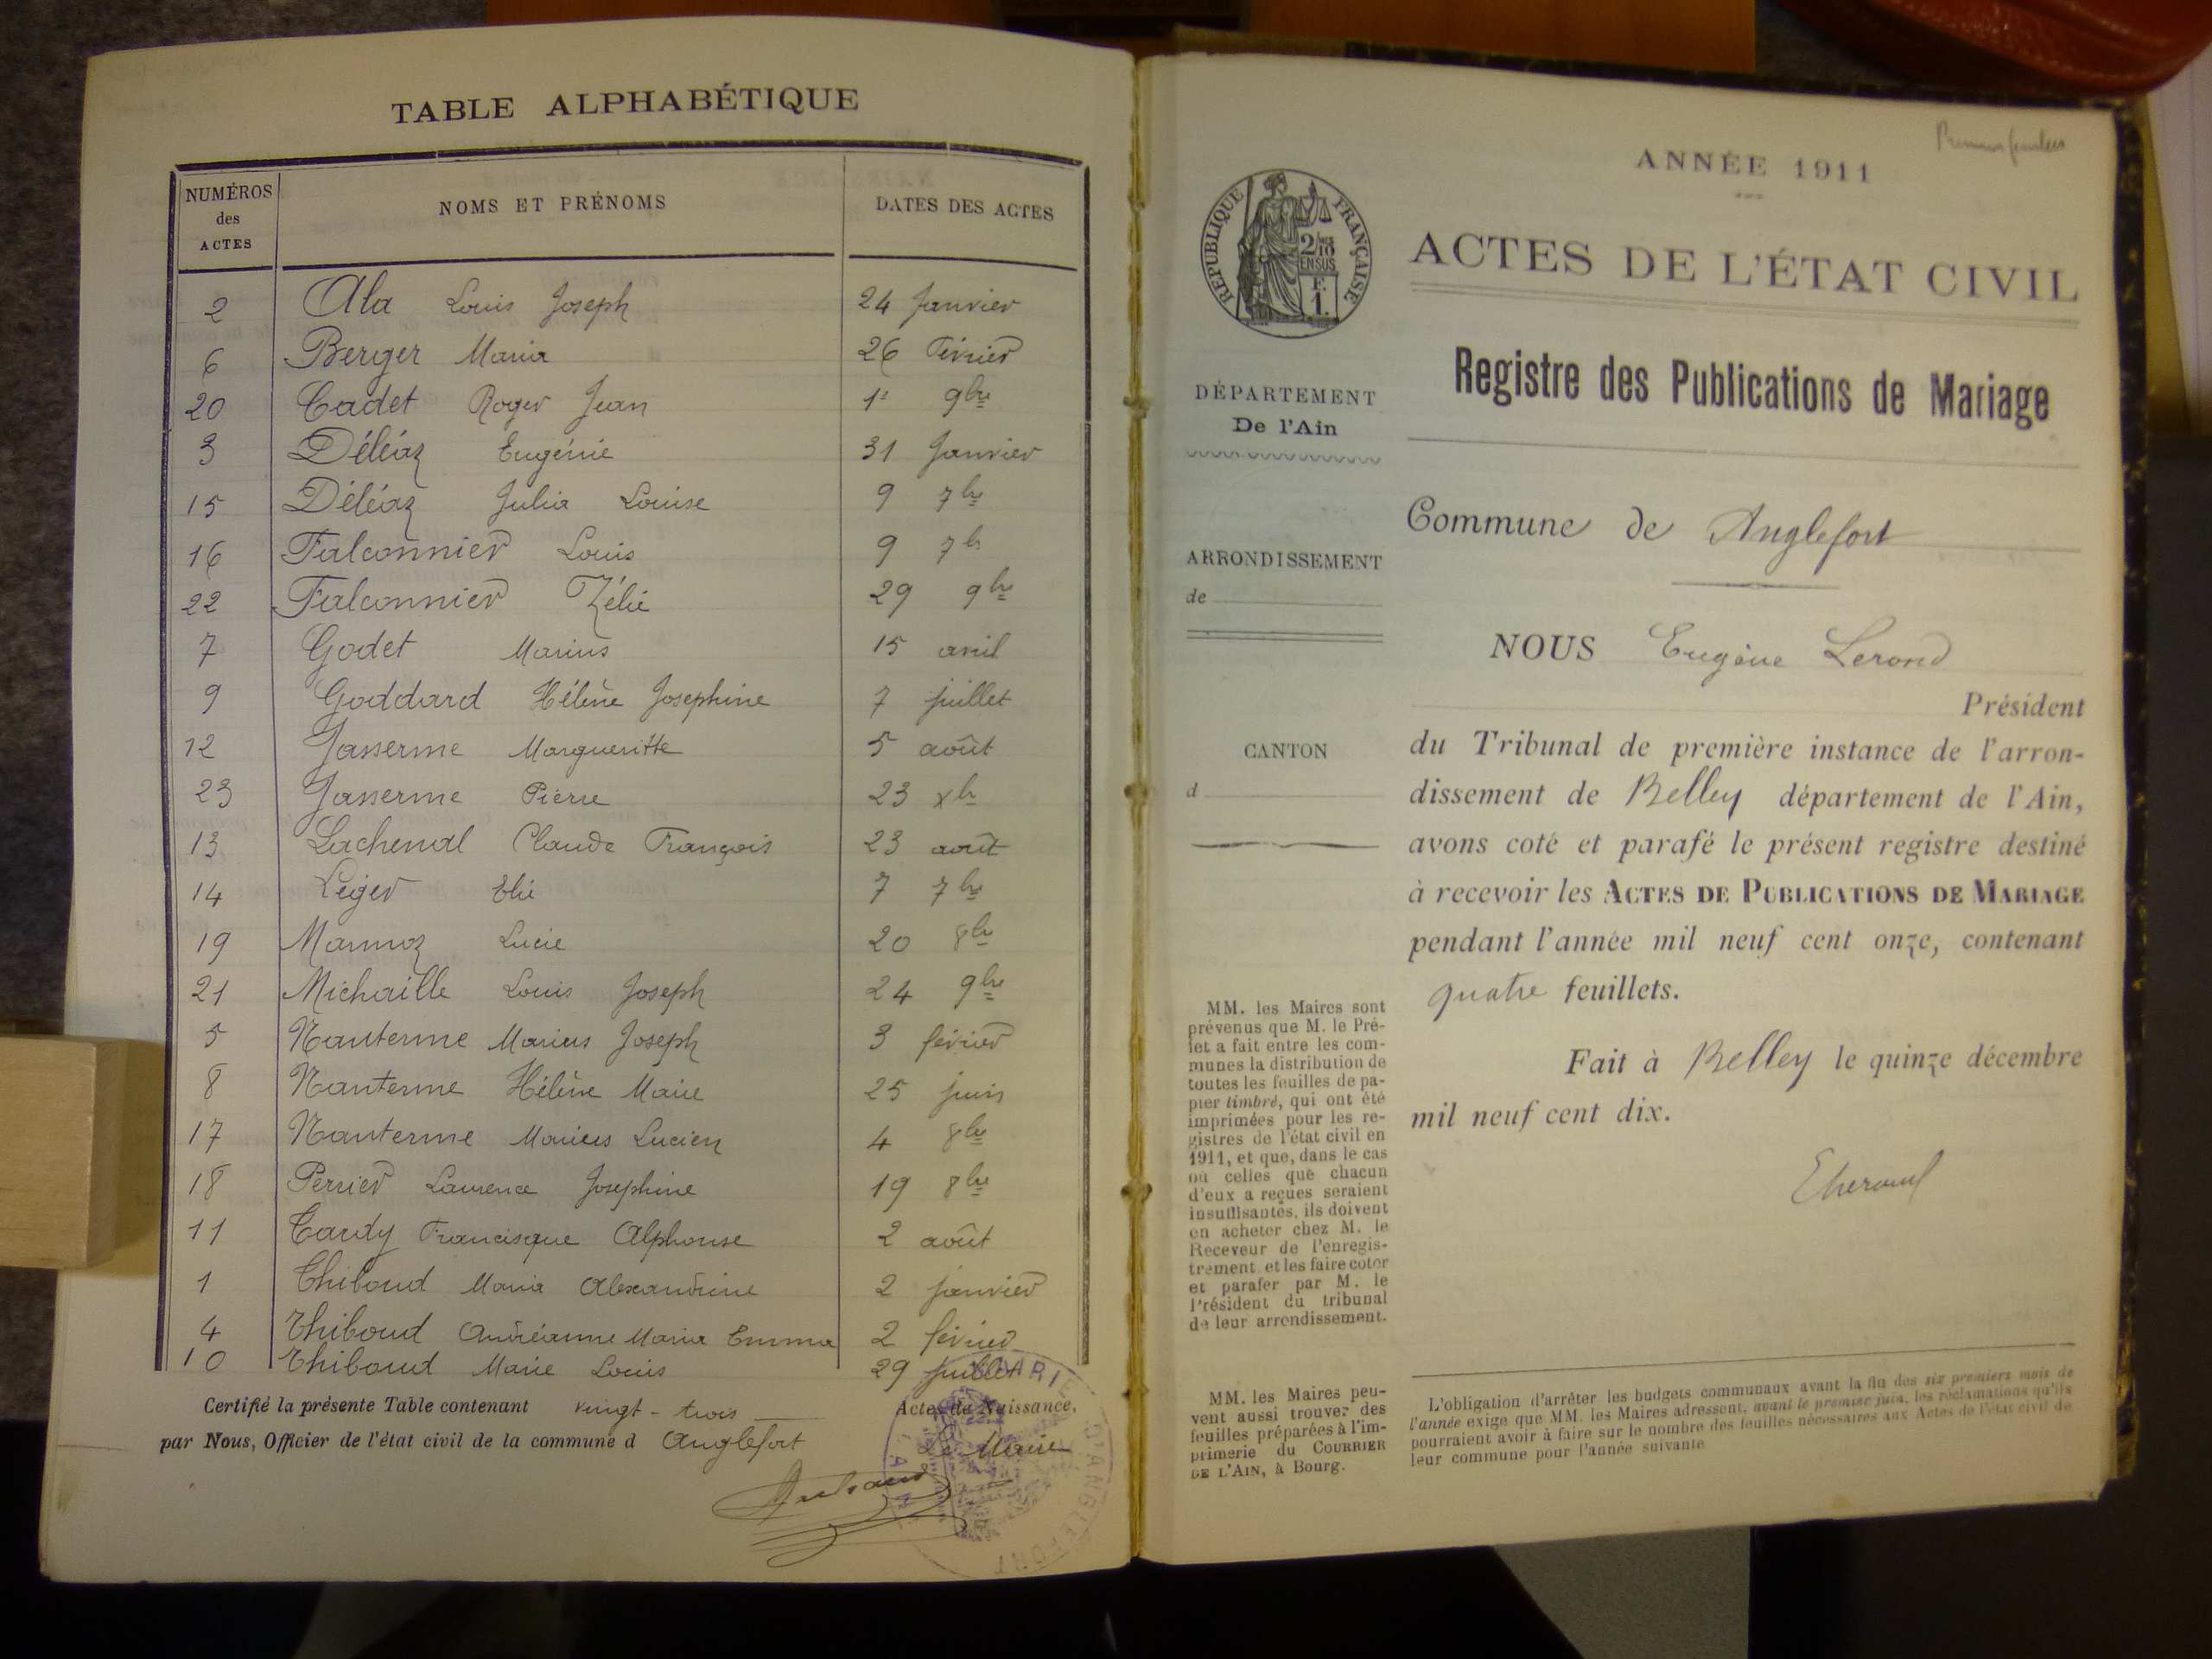 TABLE ALPHABÉTIQUE
NUMÉROS des ACTES
NOMS ET PRÉNOMS
DATES DES ACTES
2 Ala Louis Joseph 24 Janvier
6 Berger Maria 26 Février
20 Cadet Roger Jean 1er 9bre
3 Déléaz Eugénie 31 Janvier
15 Déléaz Julia Louise 9 7bre
16 Falconnier Louis 9 7b
22 Falconnier Zélie 29 9bre
7 Godet Marius 15 avril
9 Goddard Hélène Josephine 7 juillet
12 Jasserme Margueritte 5 août
23 Jasserme Pierre 23 xbre
13 Lachenal Claude François 23 août
14 Leger Elie 7 7bre
19 Marmoz Lucie 20 8bre
21 Michaille Louis Joseph 24 9bre
5 Nanterme Marius Joseph 3 février
8 Nanterme Hélène Marie 25 juin
17 Nanterme Marius Lucien 4 8bre
18 Perrier Laurence Josephine 19 8bre
11 Tardy Francisque Alphonse 2 août
1 Thiboud Maria Alexandrine 2 janvier
4 Thiboud Andréanne Maria Emma 2 février
10 Thiboud Marie Louis 29 juillet
Certifié la présente Table contenant vingt-trois Actes de Naissance,
par Nous, Officier de l'état civil de la commune d Anglefort
Le Maire
MAIRIE D'ANGLEFORT
ANNÉE 1911
RÉPUBLIQUE FRANÇAISE
2/10
EN SUS
F.
1.
ACTES DE L'ÉTAT CIVIL
Registre des Publications de Mariage
DÉPARTEMENT
De l'Ain
ARRONDISSEMENT
de
CANTON
d
Commune de Anglefort
NOUS Eugène Lerond
Président
du Tribunal de première instance de l'arron-
dissement de Belley département de l'Ain,
avons coté et parafé le présent registre destiné
à recevoir les ACTES DE PUBLICATIONS DE MARIAGE
pendant l'année mil neuf cent onze, contenant
quatre feuillets.
Fait à Belley le quinze décembre
mil neuf cent dix.
MM. les Maires sont
prévenus que M. le Pré-
fet a fait entre les com-
munes la distribution de
toutes les feuilles de pa-
pier timbré, qui ont été
imprimées pour les re-
gistres de l'état civil en
1911, et que, dans le cas
où celles que chacun
d'eux a reçues seraient
insuffisantes, ils doivent
en acheter chez M. le
Receveur de l'enregis-
trement et les faire coter
et parafer par M. le
Président du tribunal
de leur arrondissement.
MM. les Maires peu-
vent aussi trouver des
feuilles préparées à l'im-
primerie du COURRIER
DE L'AIN, à Bourg.
L'obligation d'arrêter les budgets communaux avant la fin des six premiers mois de
l'année exige que MM. les Maires adressent, avant le premier juin, les réclamations qu'ils
pourraient avoir à faire sur le nombre des feuilles nécessaires aux Actes de l'état civil de
leur commune pour l'année suivante